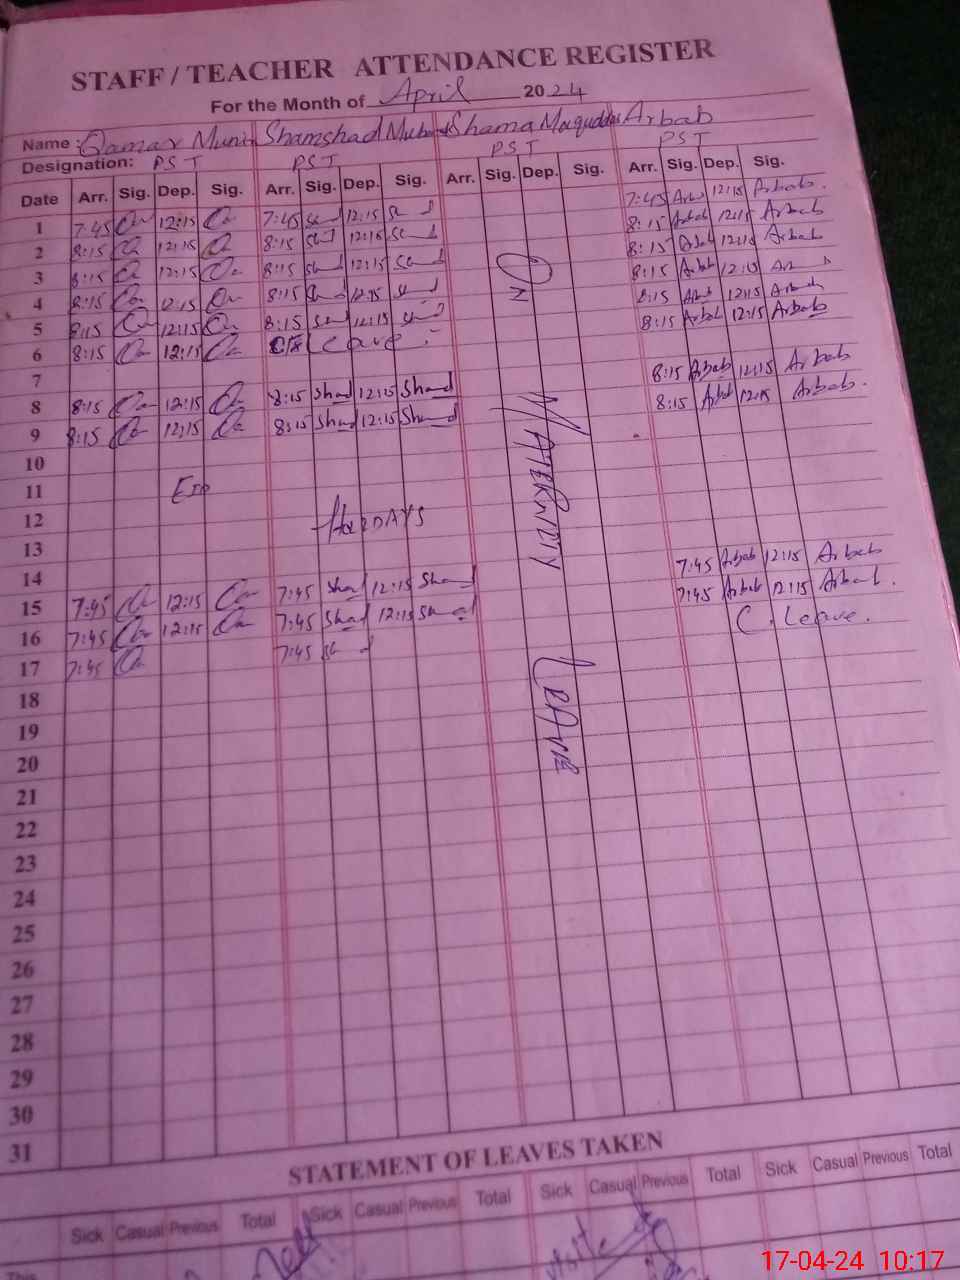 STAFF / TEACHER ATTENDANCE REGISTER
For the Month of April 2024
Name : Qamar Munir Shamshad Shama Arbab
Designation: PST PST PST PST
Date Arr. Sig. Dep. Sig. Arr. Sig. Dep. Sig. Arr. Sig. Dep. Sig. Arr. Sig. Dep. Sig.
1 7:45 12:15 7:45 12:15 7:45 Arb 12:15 Arbab.
2 8:15 12:15 8:15 12:15 8:15 Arbab 12:15 Arbab
3 8:15 12:15 8:15 12:15 8:15 Arbab 12:15 Arbab
4 8:15 12:15 8:15 12:15 8:15 Arbab 12:15
5 8:15 12:15 8:15 12:15 8:15 12:15 Arbab
6 8:15 12:15 Leave 8:15 Arbab 12:15 Arbab
7
8 8:15 12:15 8:15 Shad 12:15 Shad 8:15 Arbab 12:15 Arbab
9 8:15 12:15 8:15 Shad 12:15 Shad 8:15 Arbab 12:15 Arbab.
10
11 EID
12 HOLIDAYS
13
14
15 7:45 12:15 7:45 Shad 12:15 Shad 7:45 Arbab 12:15 Arbab
16 7:45 12:15 7:45 Shad 12:15 Shad 7:45 Arbab 12:15 Arbab.
17 7:45 7:45 C. Leave.
ON MATERNITY LEAVE
18
19
20
21
22
23
24
25
26
27
28
29
30
31
STATEMENT OF LEAVES TAKEN
Sick Casual Previous Total Sick Casual Previous Total Sick Casual Previous Total Sick Casual Previous Total
This
17-04-24 10:17